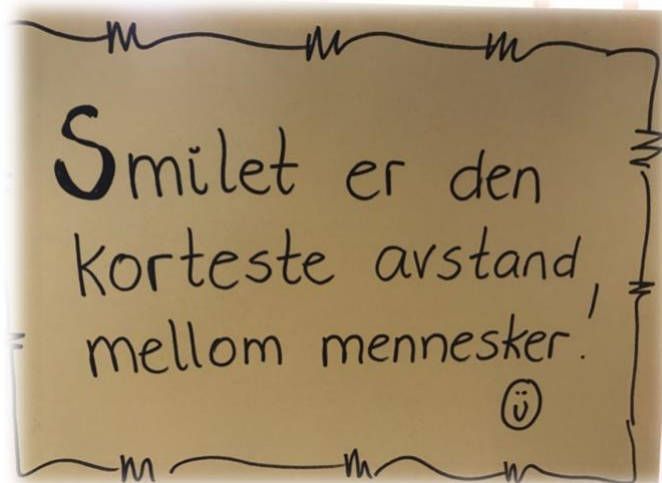 Smilet er den
korteste avstand
mellom mennesker!